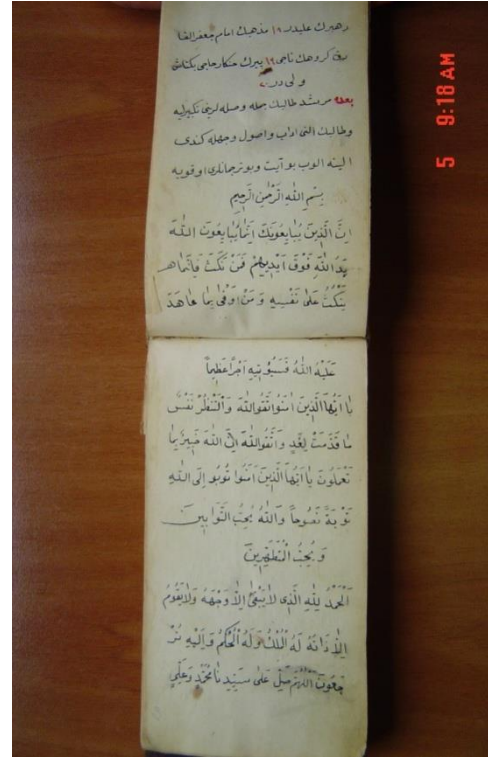 رهبرك عليدر ١٩ مذهبك امام جعفر الصا
دق كروهك ناجى ١٩ پيرك حنكار حاجى بكتاش
و لى در
بعده مرشد طالبك جمله وصله لرينى تكبيرليه
وطالبك النى اداب واصول وجهله كندى
الينه الوب بو آيت وبو ترجمانلرى اوقويه
بِسْمِ اللّٰهِ الرَّحْمٰنِ الرَّحِيمِ
اِنَّ الَّذِينَ يُبَايِعُونَكَ اِنَّمَا يُبَايِعُونَ اللّٰهَ
يَدُ اللّٰهِ فَوْقَ اَيْدِيهِمْ فَمَنْ نَكَثَ فَاِنَّمَا هـ
يَنْكُثُ عَلٰى نَفْسِهِ وَمَنْ اَوْفٰى بِمَا عَاهَدَ
عَلَيْهُ اللّٰهَ فَسَيُؤْتِيهِ اَجْرًا عَظِيمًا
يَا اَيُّهَا الَّذِينَ اٰمَنُوا اتَّقُوا اللّٰهَ وَالْتَنْظُرْ نَفْسٌ
مَا قَدَّمَتْ لِغَدٍ وَاتَّقُوا اللّٰهَ اِنَّ اللّٰهَ خَبِيرٌ بِمَا
تَعْمَلُونَ يَا اَيُّهَا الَّذِينَ اٰمَنُوا تُوبُو اِلَى اللّٰهِ
تَوْبَةً نَصُوحًا وَاللّٰهُ يُحِبُّ التَّوَّابِينَ
وَ يُحِبُّ الْمُتَطَهِّرِينَ
اَلْحَمْدُ لِلّٰهِ الَّذِى لَا يَبْقٰى اِلَّا وَجْهَهُ وَلَا يَقُومُ
اِلَّا ذَاتَهُ لَهُ الْمُلْكُ وَلَهُ الْحُكْمُ وَاِلَيْهِ تُرْ
جَعُونَ اَللّٰهُمَّ صَلِّ عَلٰى سَيِّدِنَا مُحَمَّدٍ وَعَلِىٍّ
5 9:18 AM